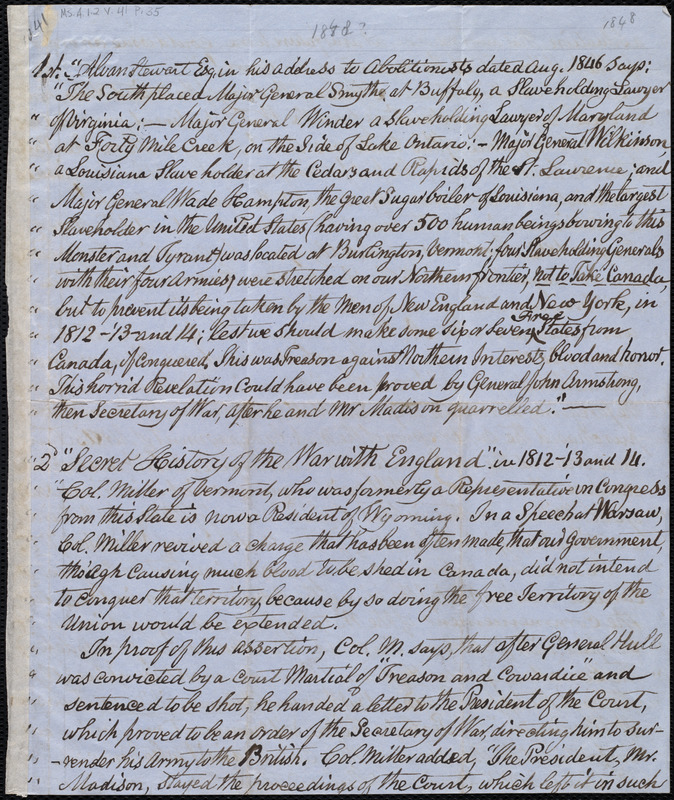 41 MS.A.1.2 V.41 P.35
1848?
1848
1st. "Alvan Stewart Esq. in his address to Abolitionists dated Aug. 1846 says:
"The South placed Major General Smythe at Buffalo, a Slaveholding Lawyer
" of Virginia; – Major General Winder a Slaveholding Lawyer of Maryland
" at Forty Mile Creek, on the Side of Lake Ontario; – Major General Wilkinson,
" a Louisiana Slaveholder at the Cedars and Rapids of the St. Lawrence; and
" Major General Wade Hampton, the great Sugar boiler of Louisiana, and the largest
" Slaveholder in the United States (having over 500 human beings bowing to this
" Monster and Tyrant) was located at Burlington, Vermont; four Slaveholding Generals
" with their four Armies, were stretched on our Northern frontier, not to take Canada,
" but to prevent its being taken by the Men of New England and New York, in
" 1812–13 and 14; lest we should make some six or seven Free States from
" Canada, if conquered. This was Treason against Northern Interests, blood and honor.
" This horrid Revelation could have been proved by General John Armstrong,
" then Secretary of War, after he and Mr Madison quarrelled." —
"2d "Secret History of the War with England" in 1812–'13 and 14.
" Col. Miller of Vermont, who was formerly a Representative in Congress
" from this State is now a Resident of Wyoming. In a Speech at Warsaw,
" Col. Miller revived a charge that has been often made, that our Government,
" though causing much blood to be shed in Canada, did not intend
" to conquer that territory, because by so doing the free Territory of the
" Union would be extended.
" In proof of this assertion, Col. M. says, that after General Hull
" was convicted by a Court Martial of "Treason and Cowardice" and
" sentenced to be shot, he handed a letter to the President of the Court,
" which proved to be an order of the Secretary of War, directing him to sur-
" -render his Army to the British. Col. Miller added, "The President, Mr.
" Madison, stayed the proceedings of the Court, which left it in such